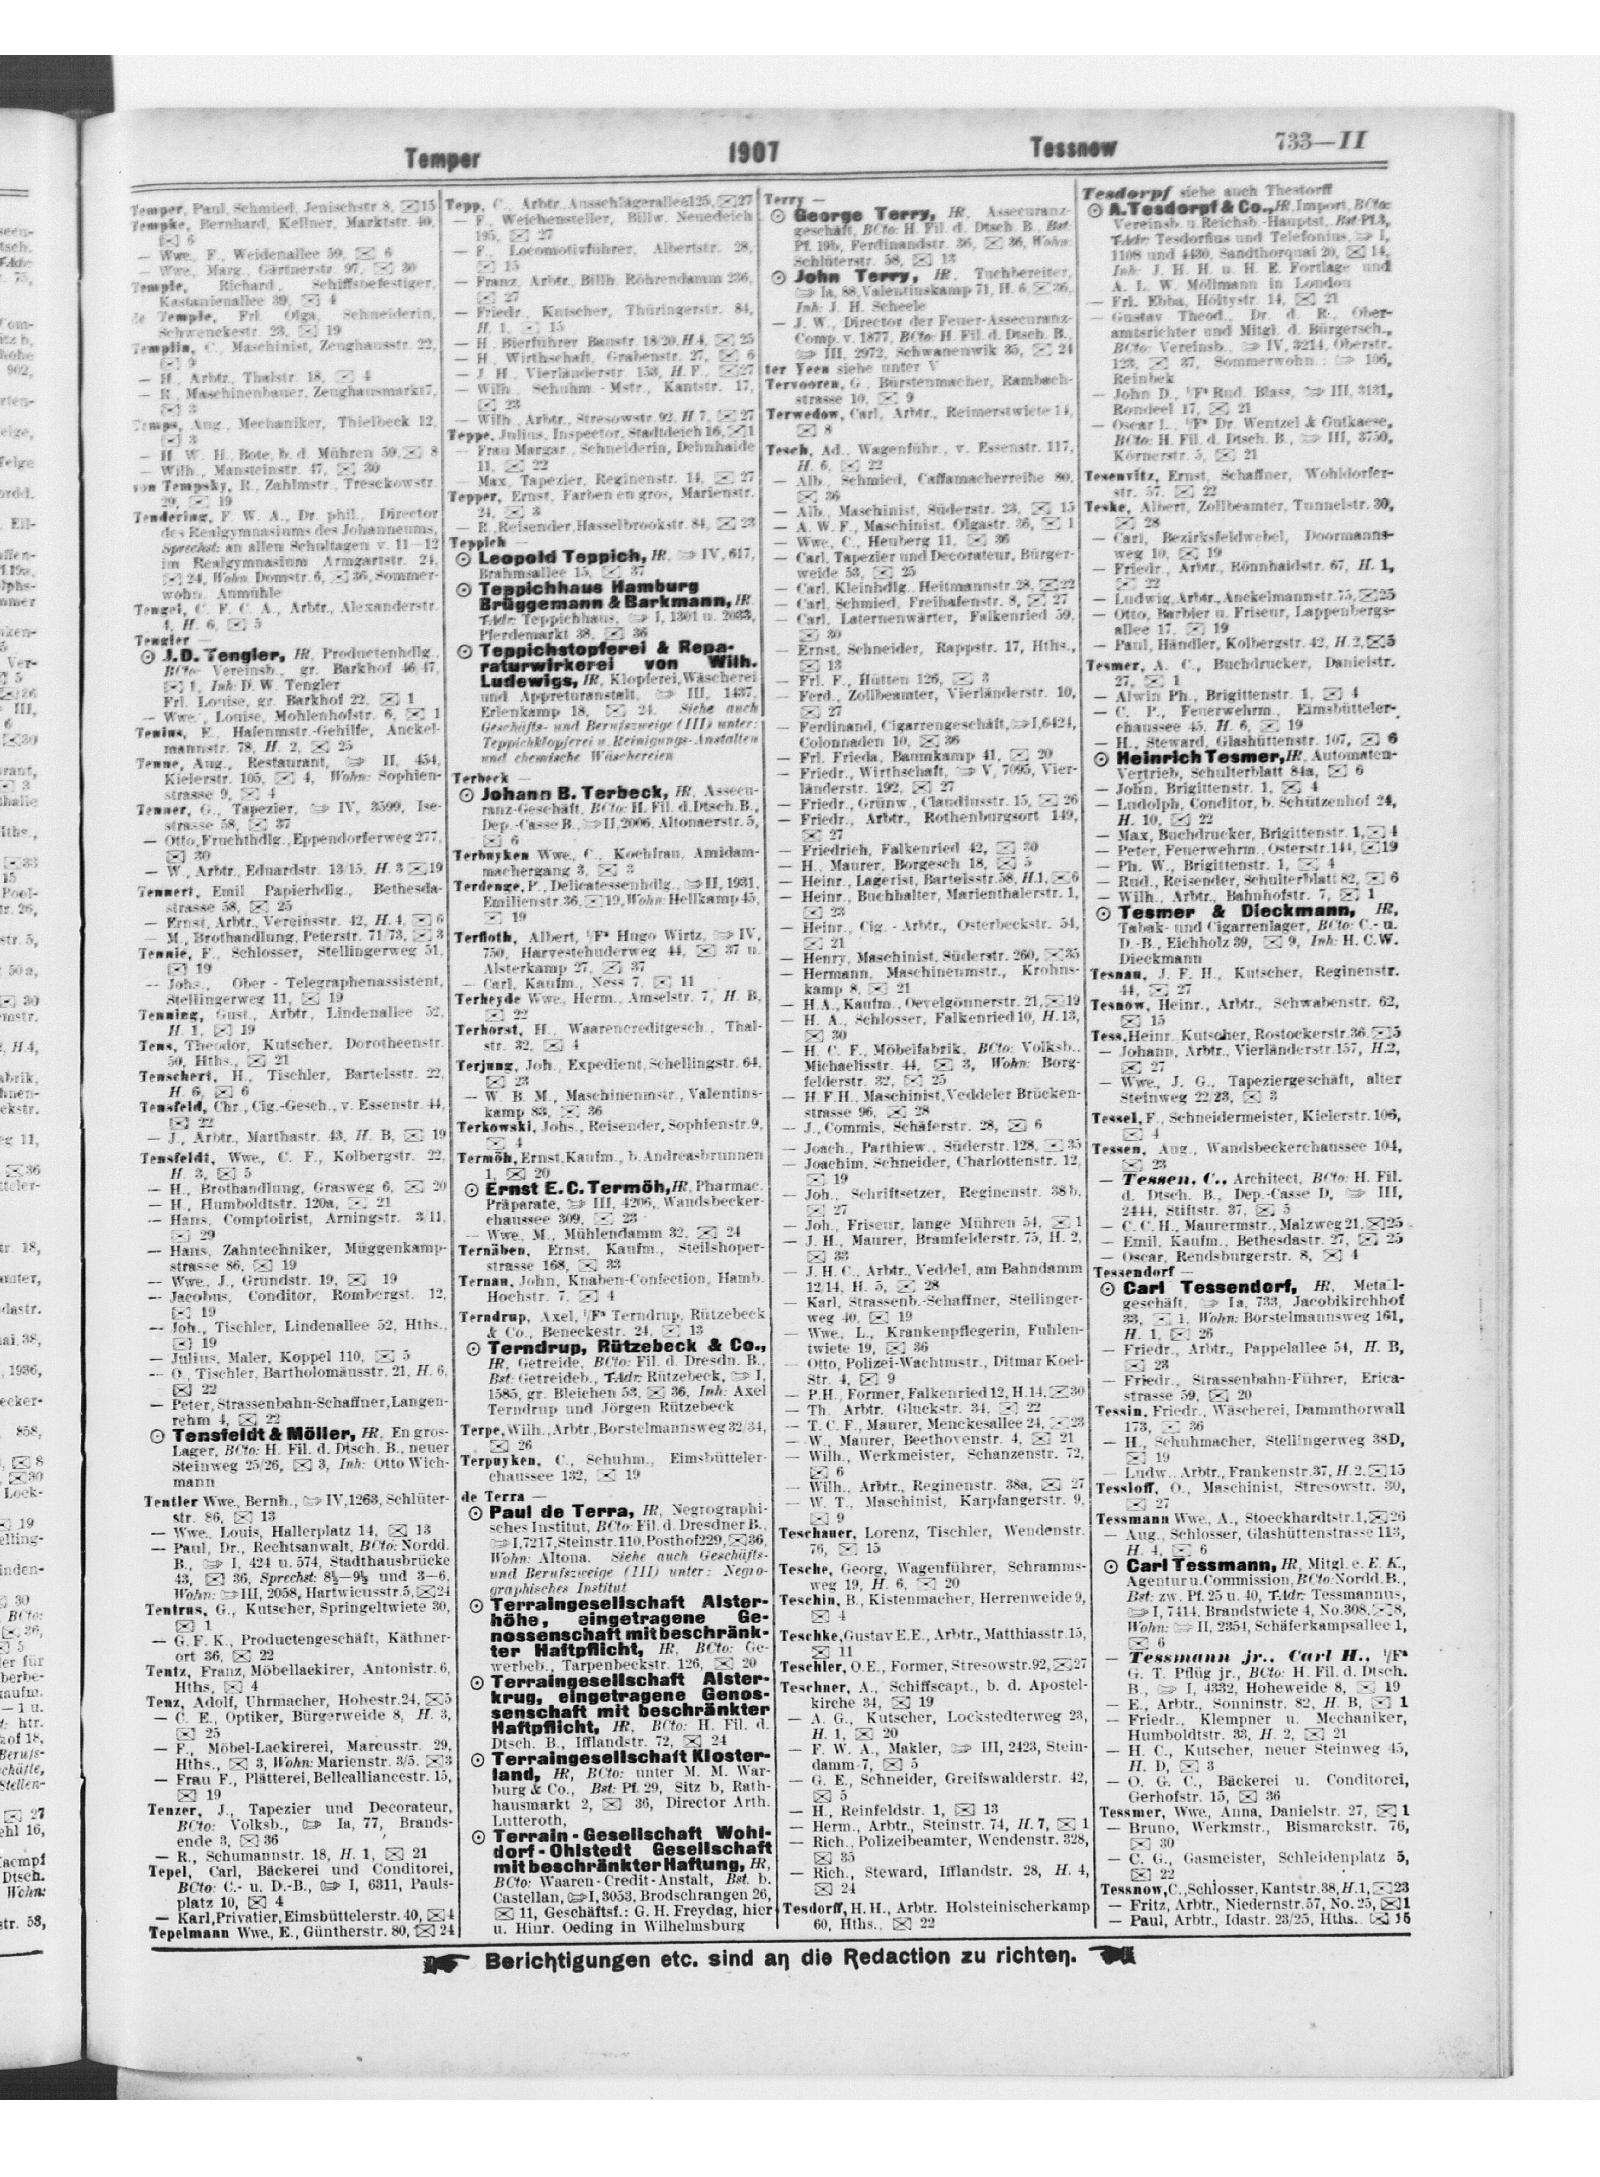 Temper 1907 Tessnow 733—II
Temper, Paul, Schmied, Jenischstr 8, ✉15
Tempke, Bernhard, Kellner, Marktstr. 40,
✉ 6
— Wwe., F., Weidenallee 59, ✉ 6
— Wwe., Marg., Gärtnerstr. 97, ✉ 30
Temple, Richard, Schiffsbefestiger,
Kastanienallee 39, ✉ 4
de Temple, Frl. Olga, Schneiderin,
Schwenckestr. 23, ✉ 19
Templin, C., Maschinist, Zeughausstr. 22,
✉ 9
— H., Arbtr., Thalstr. 18, ✉ 4
— R., Maschinenbauer, Zeughausmarkt7,
✉ 3
Temps, Aug., Mechaniker, Thielbeck 12,
✉ 3
— H. W. H., Bote, b. d. Mühren 59, ✉ 8
— Wilh., Mansteinstr. 47, ✉ 30
von Tempsky, R., Zahlmstr., Tresckowstr.
29, ✉ 19
Tendering, F. W. A., Dr. phil., Director
des Realgymnasiums des Johanneums,
Sprechst: an allen Schultagen v. 11—12
im Realgymnasium Armgartstr. 24,
✉ 24, Wohn: Domstr. 6, ✉ 36, Sommer-
wohn. Aumühle
Tengel, C. F. C. A., Arbtr., Alexanderstr.
4, H. 6, ✉ 5
Tengler —
⊙ J.D. Tengler, HR, Productenhdlg.,
BCto: Vereinsb., gr. Barkhof 46/47,
✉ 1, Inh: D. W. Tengler
Frl. Louise, gr. Barkhof 22, ✉ 1
— Wwe., Louise, Mohlenhofstr. 6, ✉ 1
Tenius, E., Hafenmstr.-Gehilfe, Anckel-
mannstr. 78, H. 2, ✉ 25
Tenne, Aug., Restaurant, ☞ II, 454,
Kielerstr. 105, ✉ 4, Wohn: Sophien-
strasse 9, ✉ 4
Tenner, G., Tapezier, ☞ IV, 3599, Ise-
strasse 58, ✉ 37
— Otto, Fruchthdlg., Eppendorferweg 277,
✉ 30
— W., Arbtr., Eduardstr. 13/15, H. 3 ✉19
Tennert, Emil Papierhdlg., Bethesda-
strasse 58, ✉ 25
— Ernst, Arbtr., Vereinsstr. 42, H. 4, ✉ 6
— M., Brothandlung, Peterstr. 71/73, ✉ 3
Tennie, F., Schlosser, Stellingerweg 51,
✉ 19
— Johs., Ober - Telegraphenassistent,
Stellingerweg 11, ✉ 19
Tenning, Gust., Arbtr., Lindenallee 52,
H. 1, ✉ 19
Tens, Theodor, Kutscher, Dorotheenstr.
50, Hths., ✉ 21
Tenschert, H., Tischler, Bartelsstr. 22,
H. 6, ✉ 6
Tensfeld, Chr., Cig.-Gesch., v. Essenstr. 44,
✉ 22
— J., Arbtr., Marthastr. 43, H. B, ✉ 19
Tensfeldt, Wwe., C. F., Kolbergstr. 22,
H. 3, ✉ 5
— H., Brothandlung, Grasweg 6, ✉ 20
— H., Humboldtstr. 120a, ✉ 21
— Hans, Comptoirist, Arningstr. 3/11,
✉ 29
— Hans, Zahntechniker, Müggenkamp-
strasse 86, ✉ 19
— Wwe., J., Grundstr. 19, ✉ 19
— Jacobus, Conditor, Rombergst. 12,
✉ 19
— Joh., Tischler, Lindenallee 52, Hths.,
✉ 19
— Julius, Maler, Koppel 110, ✉ 5
— O., Tischler, Bartholomäusstr. 21, H. 6,
✉ 22
— Peter, Strassenbahn-Schaffner, Langen-
rehm 4, ✉ 22
⊙ Tensfeldt & Möller, HR, En gros-
Lager, BCto: H. Fil. d. Dtsch. B., neuer
Steinweg 25/26, ✉ 3, Inh: Otto Wich-
mann
Tentler Wwe., Bernh., ☞ IV, 1263, Schlüter-
str. 86, ✉ 13
— Wwe., Louis, Hallerplatz 14, ✉ 13
— Paul, Dr., Rechtsanwalt, BCto: Nordd.
B., ☞ I, 424 u. 574, Stadthausbrücke
43, ✉ 36, Sprechst: 8½—9½ und 3—6,
Wohn: ☞ III, 2058, Hartwicusstr. 5, ✉24
Tentrus, G., Kutscher, Springeltwiete 30,
✉ 1
— G. F. K., Productengeschäft, Käthner-
ort 36, ✉ 22
Tentz, Franz, Möbellackirer, Antonistr. 6,
Hths, ✉ 4
Tenz, Adolf, Uhrmacher, Hohestr. 24, ✉5
— C. E., Optiker, Bürgerweide 8, H. 3,
✉ 25
— F., Möbel-Lackirerei, Marcusstr. 29,
Hths., ✉ 3, Wohn: Marienstr. 3/5. ✉3
— Frau F., Plätterei, Bellealliancestr. 15,
✉ 19
Tenzer, J., Tapezier und Decorateur,
BCto: Volksb., ☞ Ia, 77, Brands-
ende 3, ✉ 36
— R., Schumannstr. 18, H. 1, ✉ 21
Tepel, Carl, Bäckerei und Conditorei,
BCto: C.- u. D.-B., ☞ I, 6311, Pauls-
platz 10, ✉ 4
— Karl, Privatier, Eimsbüttelerstr. 40, ✉4
Tepelmann Wwe., E., Güntherstr. 80, ✉ 24
Tepp, C., Arbtr., Ausschlägerallee125, ✉27
— F., Weichensteller, Billw. Neuedeich
195, ✉ 27
— F., Locomotivführer, Albertstr. 28,
✉ 15
— Franz, Arbtr., Billh. Röhrendamm 236,
✉ 27
— Friedr., Kutscher, Thüringerstr. 84,
H. 1, ✉ 15
— H., Bierführer Banstr. 18/20, H. 4, ✉ 25
— H., Wirthschaft, Grabenstr. 27, ✉ 6
— J. H., Vierländerstr. 153, H. F., ✉27
— Wilh., Schuhm.-Mstr., Kantstr. 17,
✉ 23
— Wilh., Arbtr., Stresowstr. 92, H 7, ✉ 27
Teppe, Julius, Inspector, Stadtdeich 16, ✉1
— Frau Margar., Schneiderin, Dehnhaide
11, ✉ 22
— Max, Tapezier, Reginenstr. 14, ✉ 27
Tepper, Ernst, Farben en gros, Marienstr.
24, ✉ 3
— R., Reisender, Hasselbrookstr. 84, ✉ 23
Teppich —
⊙ Leopold Teppich, HR, ☞ IV, 617,
Brahmsallee 15, ✉ 37
⊙ Teppichhaus Hamburg
Brüggemann & Barkmann, HR,
T-Adr: Teppichhaus, ☞ I, 1301 u. 2033,
Pferdemarkt 38, ✉ 36
⊙ Teppichstopferei & Repa-
raturwirkerei von Wilh.
Ludewigs, HR, Klopferei, Wäscherei
und Appreturanstalt, ☞ III, 1437,
Erlenkamp 18, ✉ 24. Siehe auch
Geschäfts- und Berufszweige (III) unter:
Teppichklopferei u. Reinigungs-Anstalten
und chemische Wäschereien
Terbeck —
⊙ Johann B. Terbeck, HR, Assecu-
ranz-Geschäft, BCto: H. Fil. d. Dtsch. B.,
Dep.-Casse B., ☞ II, 2006, Altonaerstr. 5,
✉ 6
Terbuyken Wwe., C., Kochfrau, Amidam-
machergang 3, ✉ 3
Terdenge, P., Delicatessenhdlg., ☞ II, 1931,
Emilienstr. 36, ✉19, Wohn: Hellkamp 45,
✉ 19
Terfloth, Albert, i/Fa Hugo Wirtz, ☞ IV,
750, Harvestehuderweg 44, ✉ 37 u.
Alsterkamp 27, ✉ 37
— Carl, Kaufm., Ness 7, ✉ 11
Terheyde Wwe., Herm., Amselstr. 7, H. B,
✉ 22
Terhorst, H., Waarencreditgesch., Thal-
str. 32, ✉ 4
Terjung, Joh., Expedient, Schellingstr. 64,
✉ 23
— W. B. M., Maschinenmstr., Valentins-
kamp 83, ✉ 36
Terkowski, Johs., Reisender, Sophienstr. 9,
✉ 4
Termöh, Ernst, Kaufm., b. Andreasbrunnen
1, ✉ 20
⊙ Ernst E. C. Termöh, HR, Pharmac.
Präparate, ☞ III, 4206, Wandsbecker-
chaussee 309, ✉ 23
— Wwe., M., Mühlendamm 32, ✉ 24
Ternäben, Ernst, Kaufm., Steilshoper-
strasse 168, ✉ 33
Ternau, John, Knaben-Confection, Hamb.
Hochstr. 7, ✉ 4
Terndrup, Axel, i/Fa Terndrup, Rützebeck
& Co., Beneckestr. 24, ✉ 13
⊙ Terndrup, Rützebeck & Co.,
HR, Getreide, BCto: Fil. d. Dresdn. B.,
Bst: Getreideb., T-Adr: Rützebeck, ☞ I,
1585, gr. Bleichen 53, ✉ 36, Inh: Axel
Terndrup und Jörgen Rützebeck
Terpe, Wilh., Arbtr., Borstelmannsweg 32/34,
✉ 26
Terpuyken, C., Schuhm., Eimsbütteler-
chaussee 132, ✉ 19
de Terra —
⊙ Paul de Terra, HR, Negrographi-
sches Institut, BCto: Fil. d. Dresdner B.,
☞ I, 7217, Steinstr. 110, Posthof229, ✉36,
Wohn: Altona. Siehe auch Geschäfts-
und Berufszweige (III) unter: Negro-
graphisches Institut
⊙ Terraingesellschaft Alster-
höhe, eingetragene Ge-
nossenschaft mit beschränk-
ter Haftpflicht, HR, BCto: Ge-
werbeb., Tarpenbeckstr. 126, ✉ 20
⊙ Terraingesellschaft Alster-
krug, eingetragene Genos-
senschaft mit beschränkter
Haftpflicht, HR, BCto: H. Fil. d.
Dtsch. B., Ifflandstr. 72, ✉ 24
⊙ Terraingesellschaft Kloster-
land, HR, BCto: unter M. M. War-
burg & Co., Bst: Pf. 29, Sitz b, Rath-
hausmarkt 2, ✉ 36, Director Arth.
Lutteroth,
⊙ Terrain-Gesellschaft Wohl-
dorf-Ohlstedt Gesellschaft
mit beschränkter Haftung, HR,
BCto: Waaren-Credit-Anstalt, Bst. b.
Castellan, ☞ I, 3053, Brodschrangen 26,
✉ 11, Geschäftsf.: G. H. Freydag, hier
u. Hinr. Oeding in Wilhelmsburg
Terry —
⊙ George Terry, HR, Assecuranz-
geschäft, BCto: H. Fil. d. Dtsch. B., Bst:
Pf. 19b, Ferdinandstr. 36, ✉ 36, Wohn:
Schlüterstr. 58, ✉ 13
⊙ John Terry, HR, Tuchbereiter,
☞ Ia, 88, Valentinskamp 71, H. 6, ✉36,
Inh: J. H. Scheele
— J. W., Director der Feuer-Assecuranz-
Comp. v. 1877, BCto: H. Fil. d. Dtsch. B.,
☞ III, 2972, Schwanenwik 35, ✉ 24
ter Veen siehe unter V
Tervooren, G., Bürstenmacher, Rambach-
strasse 10, ✉ 9
Terwedow, Carl, Arbtr., Reimerstwiete 14,
✉ 8
Tesch, Ad., Wagenführ., v. Essenstr. 117,
H. 6, ✉ 22
— Alb., Schmied, Caffamacherreihe 80,
✉ 36
— Alb., Maschinist, Süderstr. 23, ✉ 15
— A. W. F., Maschinist, Olgastr. 36, ✉ 1
— Wwe., C., Heuberg 11, ✉ 36
— Carl, Tapezier und Decorateur, Bürger-
weide 53, ✉ 25
— Carl, Kleinhdlg., Heitmannstr. 28, ✉22
— Carl, Schmied, Freihafenstr. 8, ✉ 27
— Carl, Laternenwärter, Falkenried 59,
✉ 30
— Ernst, Schneider, Rappstr. 17, Hths.,
✉ 13
— Frl. F., Hütten 126, ✉ 3
— Ferd., Zollbeamter, Vierländerstr. 10,
✉ 27
— Ferdinand, Cigarrengeschäft, ☞ I, 6424,
Colonnaden 10, ✉ 36
— Frl. Frieda, Baumkamp 41, ✉ 20
— Friedr., Wirthschaft, ☞ V, 7095, Vier-
länderstr. 192, ✉ 27
— Friedr., Grünw., Claudiusstr. 15, ✉ 26
— Friedr., Arbtr., Rothenburgsort 149,
✉ 27
— Friedrich, Falkenried 42, ✉ 30
— H., Maurer, Borgesch 18, ✉ 5
— Heinr., Lagerist, Bartelsstr. 58, H. 1, ✉6
— Heinr., Buchhalter, Marienthalerstr. 1,
✉ 23
— Heinr., Cig.-Arbtr., Osterbeckstr. 54,
✉ 21
— Henry, Maschinist, Süderstr. 260, ✉35
— Hermann, Maschinenmstr., Krohns-
kamp 8, ✉ 21
— H. A., Kaufm., Oevelgönnerstr. 21, ✉19
— H. A., Schlosser, Falkenried 10, H. 13,
✉ 30
— H. C. F., Möbelfabrik, BCto: Volksb.,
Michaelisstr. 44, ✉ 3, Wohn: Borg-
felderstr. 32, ✉ 25
— H. F. H., Maschinist, Veddeler Brücken-
strasse 96, ✉ 28
— J., Commis, Schäferstr. 28, ✉ 6
— Joach., Parthiew., Süderstr. 128, ✉ 35
— Joachim, Schneider, Charlottenstr. 12,
✉ 19
— Joh., Schriftsetzer, Reginenstr. 38b,
✉ 27
— Joh., Friseur, lange Mühren 54, ✉ 1
— J. H., Maurer, Bramfelderstr. 75, H. 2,
✉ 33
— J. H. C., Arbtr., Veddel, am Bahndamm
12/14, H. 5, ✉ 28
— Karl, Strassenb.-Schaffner, Stellinger-
weg 40, ✉ 19
— Wwe., L., Krankenpflegerin, Fuhlen-
twiete 19, ✉ 36
— Otto, Polizei-Wachtmstr., Ditmar Koel-
Str. 4, ✉ 9
— P. H., Former, Falkenried 12, H. 14. ✉30
— Th., Arbtr., Gluckstr. 34, ✉ 22
— T. C. F., Maurer, Menckesallee 24, ✉23
— W., Maurer, Beethovenstr. 4, ✉ 21
— Wilh., Werkmeister, Schanzenstr. 72,
✉ 6
— Wilh., Arbtr., Reginenstr. 38a, ✉ 27
— W. T., Maschinist, Karpfangerstr. 9,
✉ 9
Teschauer, Lorenz, Tischler, Wendenstr.
76, ✉ 15
Tesche, Georg, Wagenführer, Schramms-
weg 19, H. 6, ✉ 20
Teschin, B., Kistenmacher, Herrenweide 9,
✉ 4
Teschke, Gustav E. E., Arbtr., Matthiasstr. 15,
✉ 11
Teschler, O. E., Former, Stresowstr. 92, ✉27
Teschner, A., Schiffscapt., b. d. Apostel-
kirche 34, ✉ 19
— A. G., Kutscher, Lockstedterweg 23,
H. 1, ✉ 20
— F. W. A., Makler, ☞ III, 2423, Stein-
damm 7, ✉ 5
— G. E., Schneider, Greifswalderstr. 42,
✉ 5
— H., Reinfeldstr. 1, ✉ 13
— Herm., Arbtr., Steinstr. 74, H. 7, ✉ 1
— Rich., Polizeibeamter, Wendenstr. 328,
✉ 35
— Rich., Steward, Ifflandstr. 28, H. 4,
✉ 24
Tesdorff, H. H., Arbtr. Holsteinischerkamp
60, Hths., ✉ 22
Tesdorpf siehe auch Thestorff
⊙ A. Tesdorpf & Co., HR, Import, BCto:
Vereinsb. u. Reichsb.-Hauptst., Bst: Pf. 3,
T-Adr: Tesdorfius und Telefonius, ☞ I,
1108 und 4430, Sandthorquai 20, ✉ 14,
Inh: J. H. H. u. H. E. Fortlage und
A. L. W. Möllmann in London
— Frl. Ebba, Höltystr. 14, ✉ 21
— Gustav Theod., Dr. d. R., Ober-
amtsrichter und Mitgl. d. Bürgersch.,
BCto: Vereinsb., ☞ IV, 3214, Oberstr.
123, ✉ 37, Sommerwohn.: ☞ 106,
Reinbek
— John D., i/Fa Rud. Blass, ☞ III, 3131,
Rondeel 17, ✉ 21
— Oscar L., i/Fa Dr. Wentzel & Gutkaese,
BCto: H. Fil. d. Dtsch. B., ☞ III, 3750,
Körnerstr. 5, ✉ 21
Tesenvitz, Ernst, Schaffner, Wohldorfer-
str. 57, ✉ 22
Teske, Albert, Zollbeamter, Tunnelstr. 30,
✉ 28
— Carl, Bezirksfeldwebel, Doormanns-
weg 10, ✉ 19
— Friedr., Arbtr., Rönnhaidstr. 67, H. 1,
✉ 22
— Ludwig, Arbtr., Anckelmannstr. 75, ✉25
— Otto, Barbier u. Friseur, Lappenbergs-
allee 17, ✉ 19
— Paul, Händler, Kolbergstr. 42, H. 2, ✉5
Tesmer, A. C., Buchdrucker, Danielstr.
27, ✉ 1
— Alwin Ph., Brigittenstr. 1, ✉ 4
— C. P., Feuerwehrm., Eimsbütteler-
chaussee 45, H. 6, ✉ 19
— H., Steward, Glashüttenstr. 107, ✉ 6
⊙ Heinrich Tesmer, HR, Automaten-
Vertrieb, Schulterblatt 84a, ✉ 6
— John, Brigittenstr. 1, ✉ 4
— Ludolph, Conditor, b. Schützenhof 24,
H. 10, ✉ 22
— Max, Buchdrucker, Brigittenstr. 1, ✉ 4
— Peter, Feuerwehrm., Osterstr. 144, ✉19
— Ph. W., Brigittenstr. 1, ✉ 4
— Rud., Reisender, Schulterblatt 82, ✉ 6
— Wilh., Arbtr., Bahnhofstr. 7, ✉ 1
⊙ Tesmer & Dieckmann, HR,
Tabak- und Cigarrenlager, BCto: C.- u.
D.-B., Eichholz 39, ✉ 9, Inh: H. C. W.
Dieckmann
Tesnau, J. F. H., Kutscher, Reginenstr.
44, ✉ 27
Tesnow, Heinr., Arbtr., Schwabenstr. 62,
✉ 15
Tess, Heinr., Kutscher, Rostockerstr. 36. ✉5
— Johann, Arbtr., Vierländerstr. 157, H. 2,
✉ 27
— Wwe., J. G., Tapeziergeschäft, alter
Steinweg 22/23, ✉ 3
Tessel, F., Schneidermeister, Kielerstr. 106,
✉ 4
Tessen, Aug., Wandsbeckerchaussee 104,
✉ 23
— Tessen, C., Architect, BCto: H. Fil.
d. Dtsch. B., Dep.-Casse D, ☞ III,
2444, Stiftstr. 37, ✉ 5
— C. C. H., Maurermstr., Malzweg 21, ✉25
— Emil, Kaufm., Bethesdastr. 27, ✉ 25
— Oscar, Rendsburgerstr. 8, ✉ 4
Tessendorf —
⊙ Carl Tessendorf, HR, Metall-
geschäft, ☞ Ia, 733, Jacobikirchhof
33, ✉ 1, Wohn: Borstelmannsweg 161,
H. 1, ✉ 26
— Friedr., Arbtr., Pappelallee 54, H. B,
✉ 23
— Friedr., Strassenbahn-Führer, Erica-
strasse 59, ✉ 20
Tessin, Friedr., Wäscherei, Dammthorwall
173, ✉ 36
— H., Schuhmacher, Stellingerweg 38D,
✉ 19
— Ludw., Arbtr., Frankenstr. 37, H. 2, ✉15
Tessloff, O., Maschinist, Stresowstr. 30,
✉ 27
Tessmann Wwe., A., Stoeckhardtstr. 1, ✉26
— Aug., Schlosser, Glashüttenstrasse 113,
H. 4, ✉ 6
⊙ Carl Tessmann, HR, Mitgl. e. E. K.,
Agentur u. Commission, BCto: Nordd. B.,
Bst: zw. Pf. 25 u. 40, T-Adr: Tessmannus,
☞ I, 7414, Brandstwiete 4, No. 308. ✉8,
Wohn: ☞ II, 2354, Schäferkampsallee 1,
✉ 6
— Tessmann jr., Carl H., i/Fa
G. T. Pflüg jr., BCto: H. Fil. d. Dtsch.
B., ☞ I, 4332, Hoheweide 8, ✉ 19
— E., Arbtr., Sonninstr. 82, H. B, ✉ 1
— Friedr., Klempner u. Mechaniker,
Humboldtstr. 33, H. 2, ✉ 21
— H. C., Kutscher, neuer Steinweg 45,
H. D, ✉ 3
— O. G. C., Bäckerei u. Conditorei,
Gerhofstr. 15, ✉ 36
Tessmer, Wwe., Anna, Danielstr. 27, ✉ 1
— Bruno, Werkmstr., Bismarckstr. 76,
✉ 30
— C. G., Gasmeister, Schleidenplatz 5,
✉ 22
Tessnow, C., Schlosser, Kantstr. 38, H. 1, ✉23
— Fritz, Arbtr., Niedernstr. 57, No. 25, ✉1
— Paul, Arbtr., Idastr. 23/25, Hths., ✉ 15
Berichtigungen etc. sind an die Redaction zu richten.